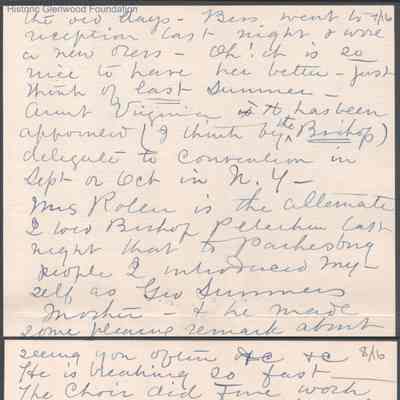 Historic Glenwood Foundation
the old days - Bess went to 7/16
reception last night & wore
a new dress - Oh! it is so
nice to have her better - just
think of last summer -
Aunt Virginia has been
appointed (I think by the Bishop)
delegate to Convention in
Sept or Oct in N.Y. -
Mrs Rolen is the alternate
I told Bishop Peterkin last
night that to Parkersburg
people I introduced my-
self as Geo Summers
Mother - & he made
some pleasing remark about
seeing you often &c &c 8/16
He is breaking so fast
The Choir did fine work